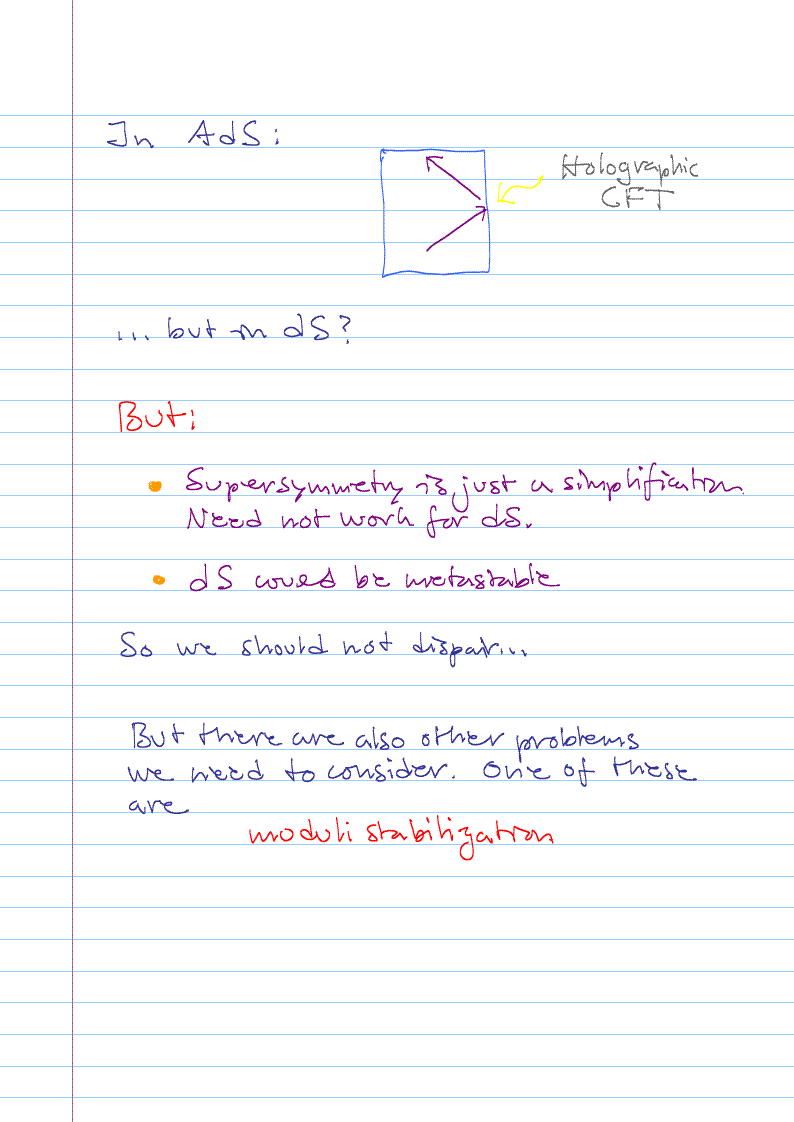 In AdS:
Holographic
CFT
... but in dS?
But:
• Supersymmetry is just a simplification.
Need not work for dS.
• dS could be metastable
So we should not dispair...
But there are also other problems
we need to consider. One of these
are
moduli stabilization